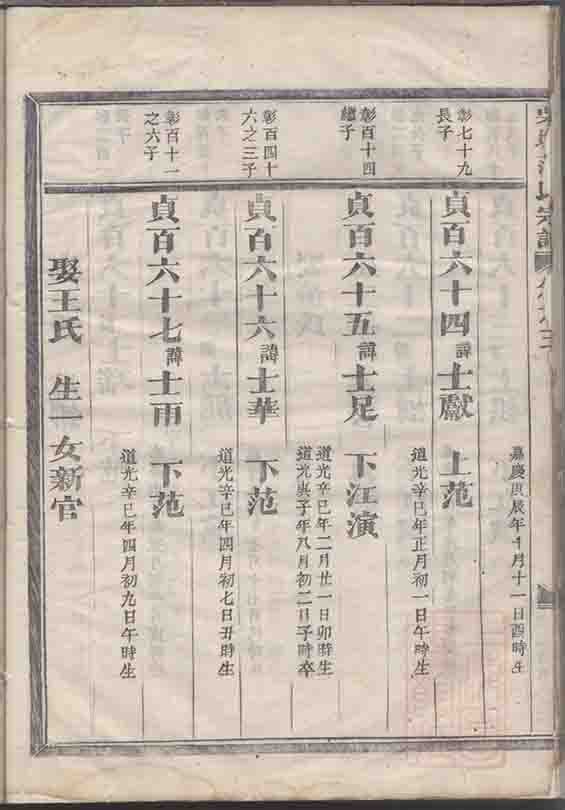 氏宗譜
嘉慶庚辰年十月十一日酉時生
彰七十九
長子
貞百六十四 諱 士獻 上范
道光辛巳年正月初一日午時生
彰百十四
繼子
貞百六十五 諱 士足 下江演
道光辛巳年二月廿一日卯時生
道光庚子年八月初二日子時卒
彰百四十
六之三子
貞百六十六 諱 士華 下范
道光辛巳年四月初七日丑時生
彰百十一
之六子
貞百六十七 諱 士雨 下范
道光辛巳年四月初九日午時生
娶王氏 生一女新官